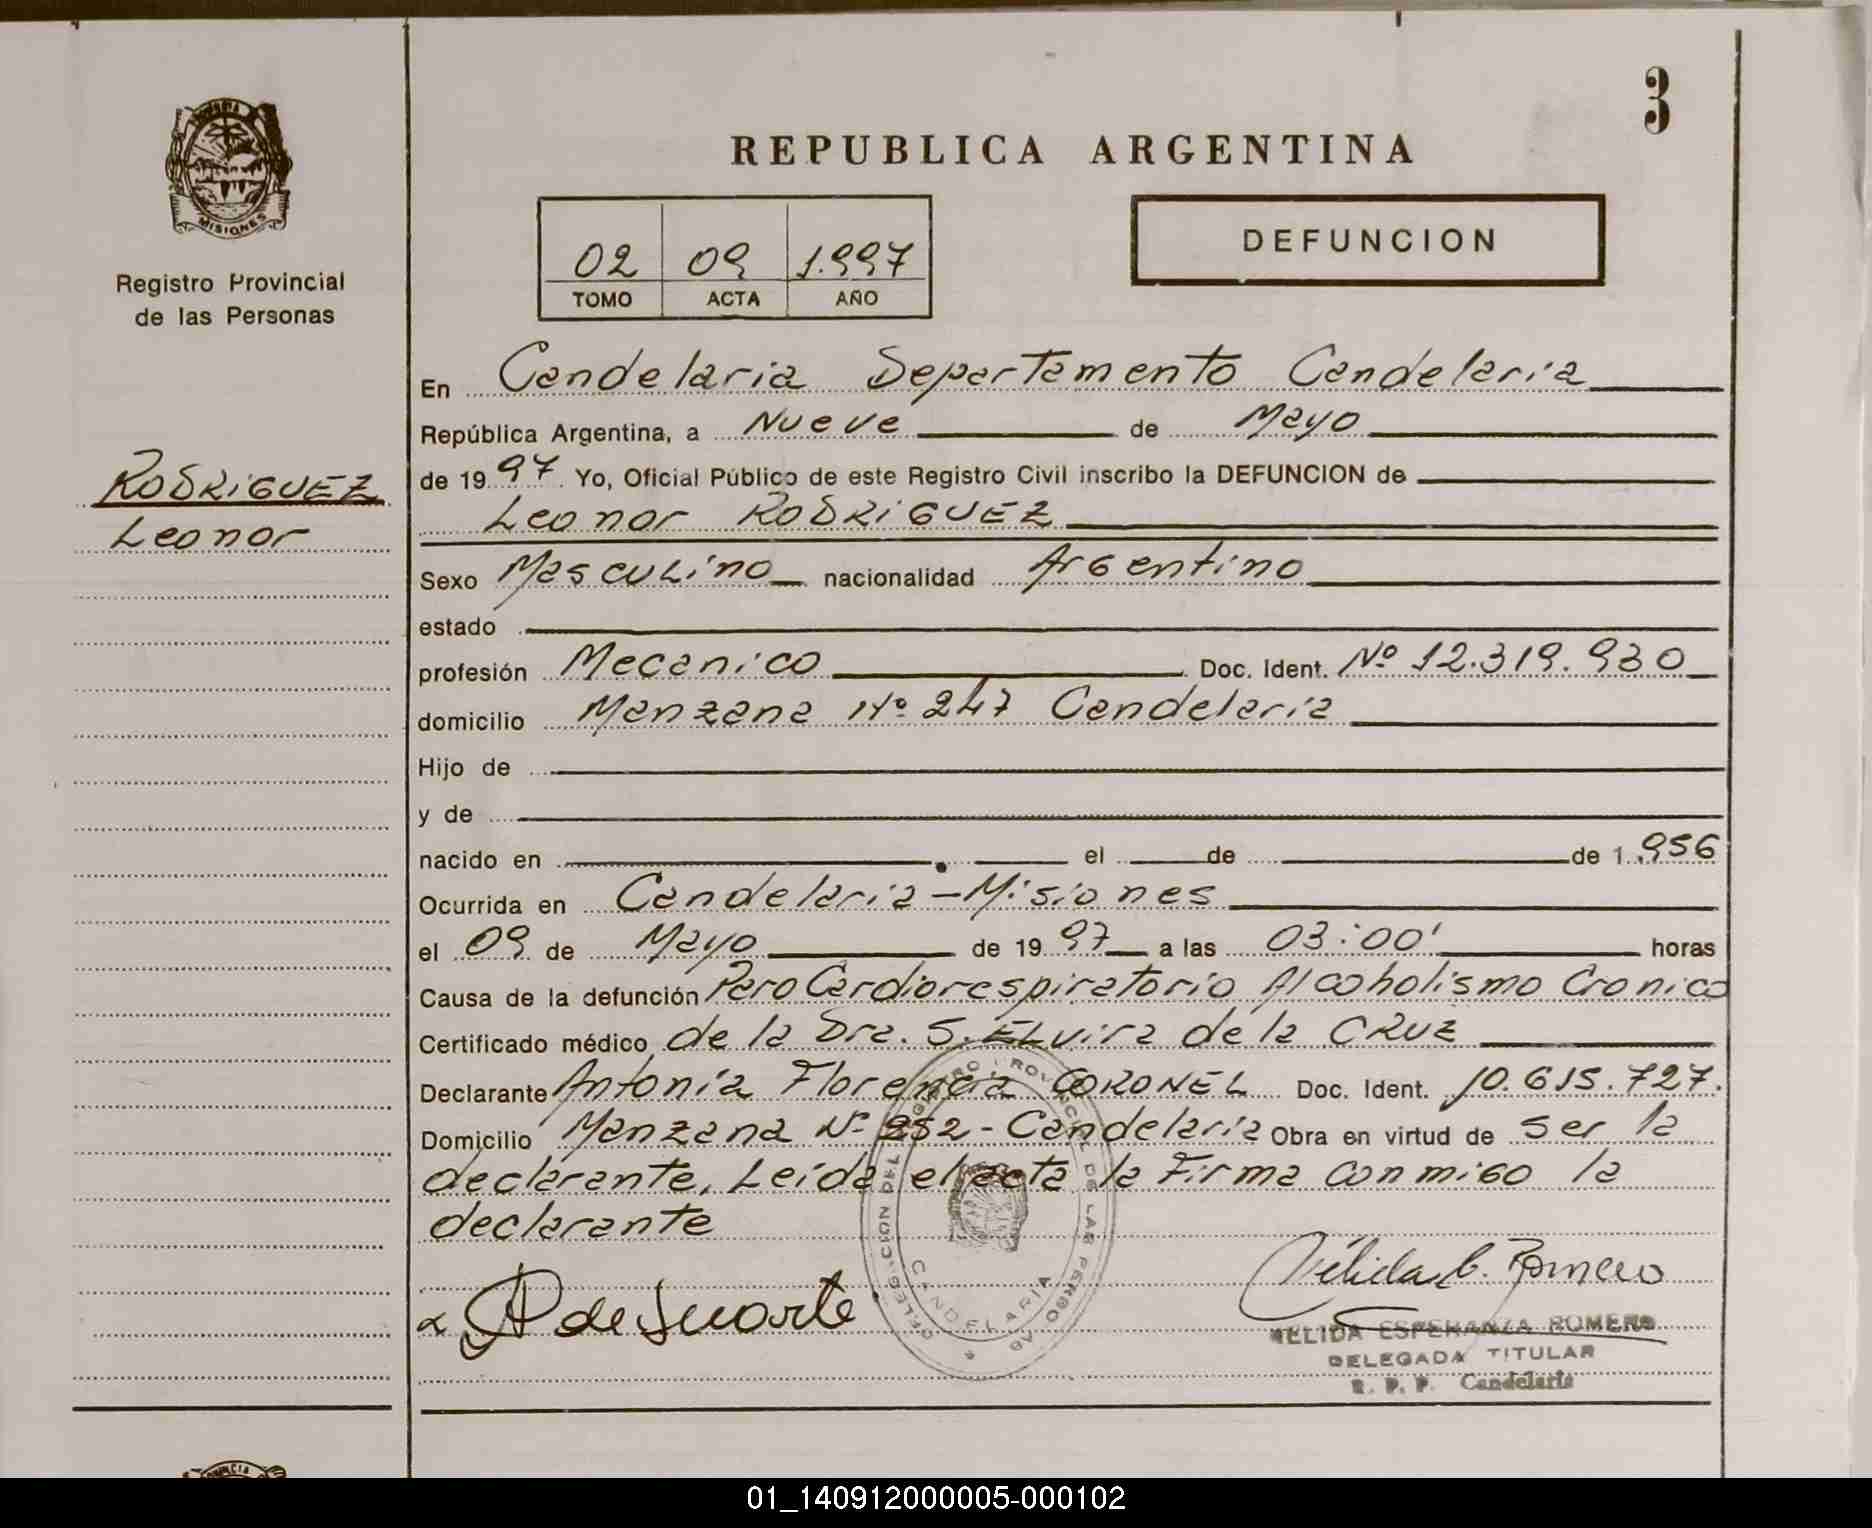 3
MISIONES
Registro Provincial
de las Personas
RODRIGUEZ
Leonor
REPUBLICA ARGENTINA
02 09 1.997
TOMO ACTA AÑO
DEFUNCION
En Candelaria Departamento Candelaria
República Argentina, a Nueve de Mayo
de 1997 Yo, Oficial Público de este Registro Civil inscribo la DEFUNCION de
Leonor RODRIGUEZ
Sexo Masculino nacionalidad Argentino
estado
profesión Mecanico Doc. Ident. Nº 12.319.930
domicilio Manzana Nº 247 Candelaria
Hijo de
y de
nacido en el de de 1.956
Ocurrida en Candelaria-Misiones
el 09 de Mayo de 1997 a las 03:00' horas
Causa de la defunción Paro Cardiorespiratorio Alcoholismo Cronico
Certificado médico de la Dra. S. ELvira de la CRUZ
Declarante Antonia Florencia CORONEL Doc. Ident. 10.615.727.
Domicilio Manzana Nº 252-Candelaria Obra en virtud de ser la
declarante, Leida el acta la Firma conmigo la
declarante
de Duarte
Nélida E. Romero
NELIDA ESPERANZA ROMERO
DELEGADA TITULAR
R. P. P. Candelaria
DELEGACION DEL REGISTRO PROVINCIAL DE LAS PERSONAS
CANDELARIA
01_140912000005-000102